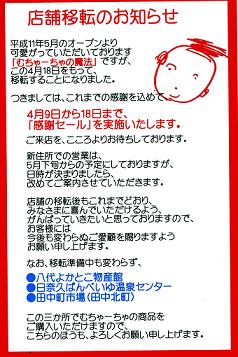 店舗移転のお知らせ
平成11年5月のオープンより
可愛がっていただいております
「むちゃーちゃの魔法」ですが、
この4月18日をもって、
移転することになりました。
つきましては、これまでの感謝を込めて、
4月9日から18日まで、
「感謝セール」を実施いたします。
ご来店を、こころよりお待ちしております。
新住所での営業は、
5月下旬からの予定にしておりますが、
日時が決まりましたら、
改めてご案内させていただきます。
店舗の移転後もこれまでどおり、
みなさまに喜んでいただけるよう、
がんばっていきたいと思っておりますので、
お客様には
今後も変わらぬご愛顧を賜りますよう
お願い申し上げます。
なお、移転準備中も変わらず、
●八代よかとこ物産館
●日奈久ばんぺいゆ温泉センター
●田中町市場(田中北町)
この三か所でむちゃーちゃの商品を
ご購入いただけますので、
こちらのほうも、よろしくお願い申し上げます。